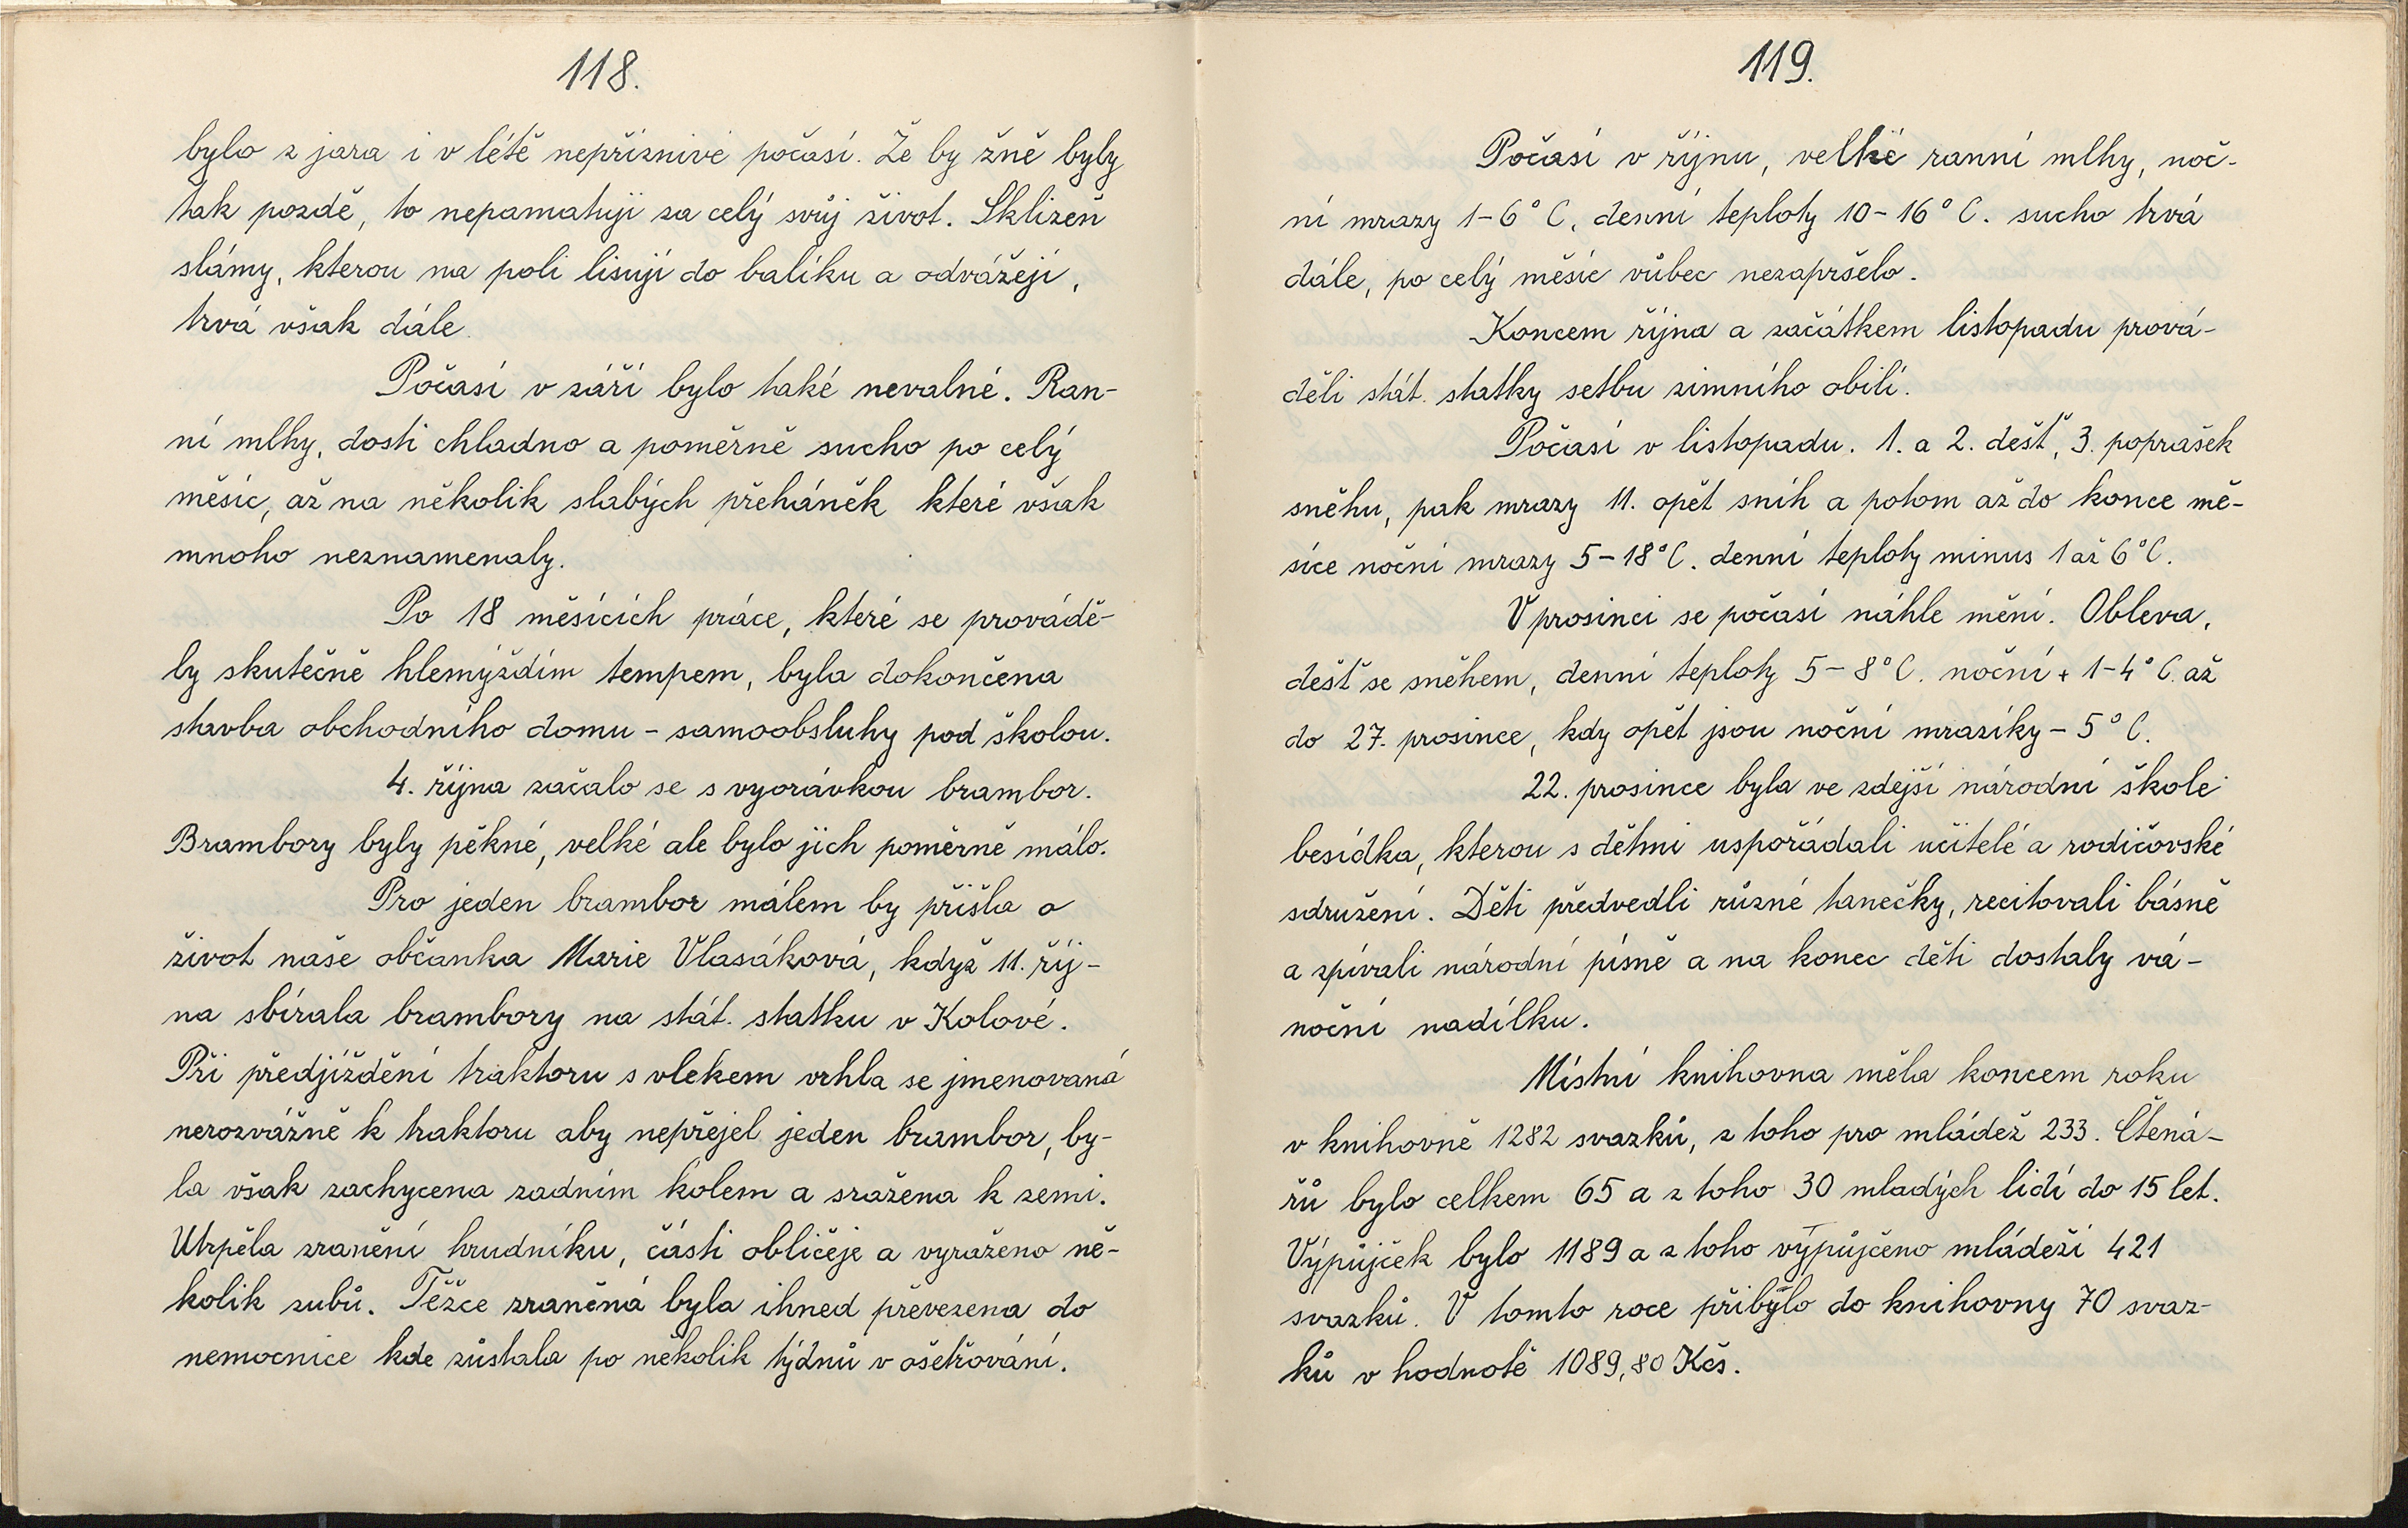 118.
bylo z jara i v létě nepříznivé počasí. Že by žně byly
tak pozdě, to nepamatuji za celý svůj život. Sklizeň
slámy, kterou na poli lisují do balíku a odvážejí,
trvá však dále.
Počasí v září bylo také nevalné. Ran-
ní mlhy, dosti chladno a poměrně sucho po celý
měsíc, až na několik slabých přeháněk které však
mnoho neznamenaly.
Po 18 měsících práce, které se prováდě-
ly skutečně hlemýždím tempem, byla dokončena
stavba obchodního domu - samoobsluhy pod školou.
4. října začalo se s vyorávkou brambor.
Brambory byly pěkné, velké ale bylo jich poměrně málo.
Pro jeden brambor málem by přišla o
život naše občanka Marie Vlasáková, když 11. říj-
na sbírala brambory na stát. statku v Kolové.
Při předjíždění traktoru s vlekem vrhla se jmenovaná
nerozvážně k traktoru aby nepřejel jeden brambor, by-
la však zachycena zadním kolem a sražena k zemi.
Utrpěla zranění hrudníku, části obličeje a vyraženo ně-
kolik zubů. Těžce zraněná byla ihned převezena do
nemocnice kde zůstala po několik týdnů v ošetřování.
119.
Počasí v říjnu, velké ranní mlhy, noč-
ní mrazy 1-6°C, denní teploty 10-16°C. sucho trvá
dále, po celý měsíc vůbec nezapršelo.
Koncem října a začátkem listopadu prová-
děli stát. statky setbu zimního obilí.
Počasí v listopadu. 1. a 2. déšť, 3. poprašek
sněhu, pak mrazy 11. opět sníh a potom až do konce mě-
síce noční mrazy 5-18°C. denní teploty minus 1 až 6°C.
V prosinci se počasí náhle mění. Obleva,
déšť se sněhem, denní teploty 5-8°C. noční + 1-4°C. až
do 27. prosince, kdy opět jsou noční mrazíky - 5°C.
22. prosince byla ve zdejší národní škole
besídka, kterou s dětmi uspořádali učitelé a rodičovské
sdružení. Děti předvedli různé tanečky, recitovali básně
a zpívali národní písně a na konec děti dostaly vá-
noční nadílku.
Místní knihovna měla koncem roku
v knihovně 1282 svazků, z toho pro mládež 233. Čtená-
řů bylo celkem 65 a z toho 30 mladých lidí do 15 let.
Výpůjček bylo 1189 a z toho výpůjčeno mládeži 421
svazků. V tomto roce přibylo do knihovny 70 svaz-
ků v hodnotě 1089,80 Kčs.